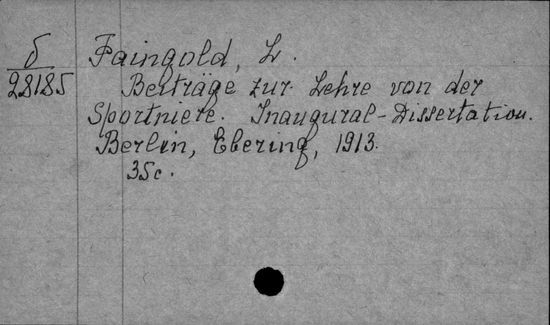 б
28185
Faingold, L.
Beiträge zur Lehre von der
Sportniere. Inaugural-Dissertation.
Berlin, Ebering, 1913.
35c.